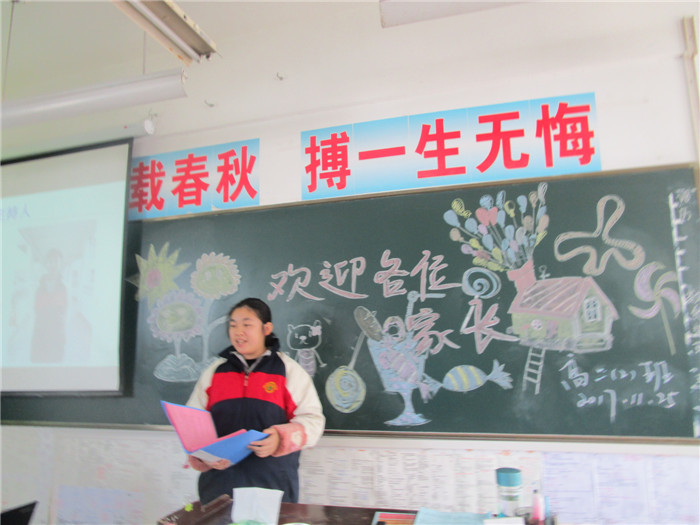 载春秋 搏一生无悔
持人
欢迎各位
家长
高二(2)班
2017.11.25